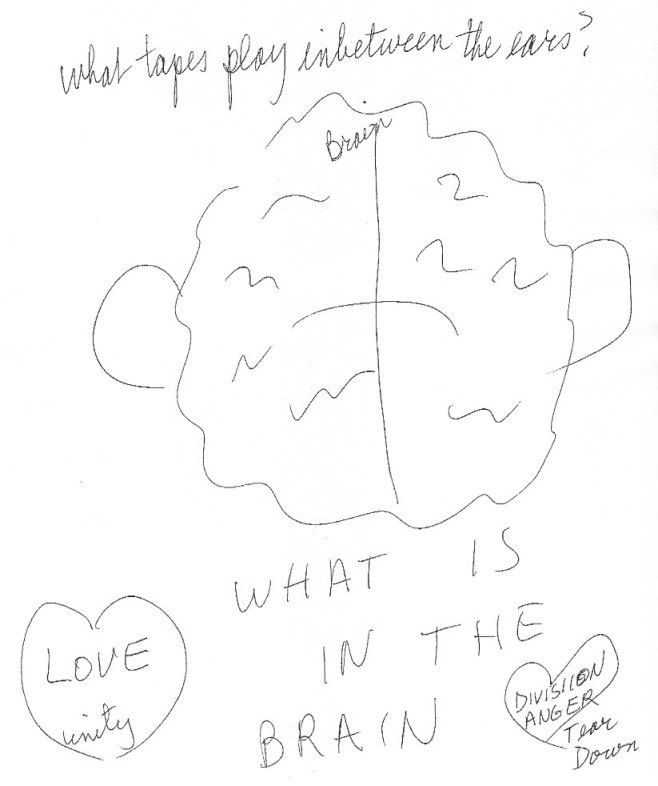 what tapes play inbetween the ears?
Brain
WHAT IS
IN THE
BRAIN
LOVE
unity
DIVISIION
ANGER
Tear
Down